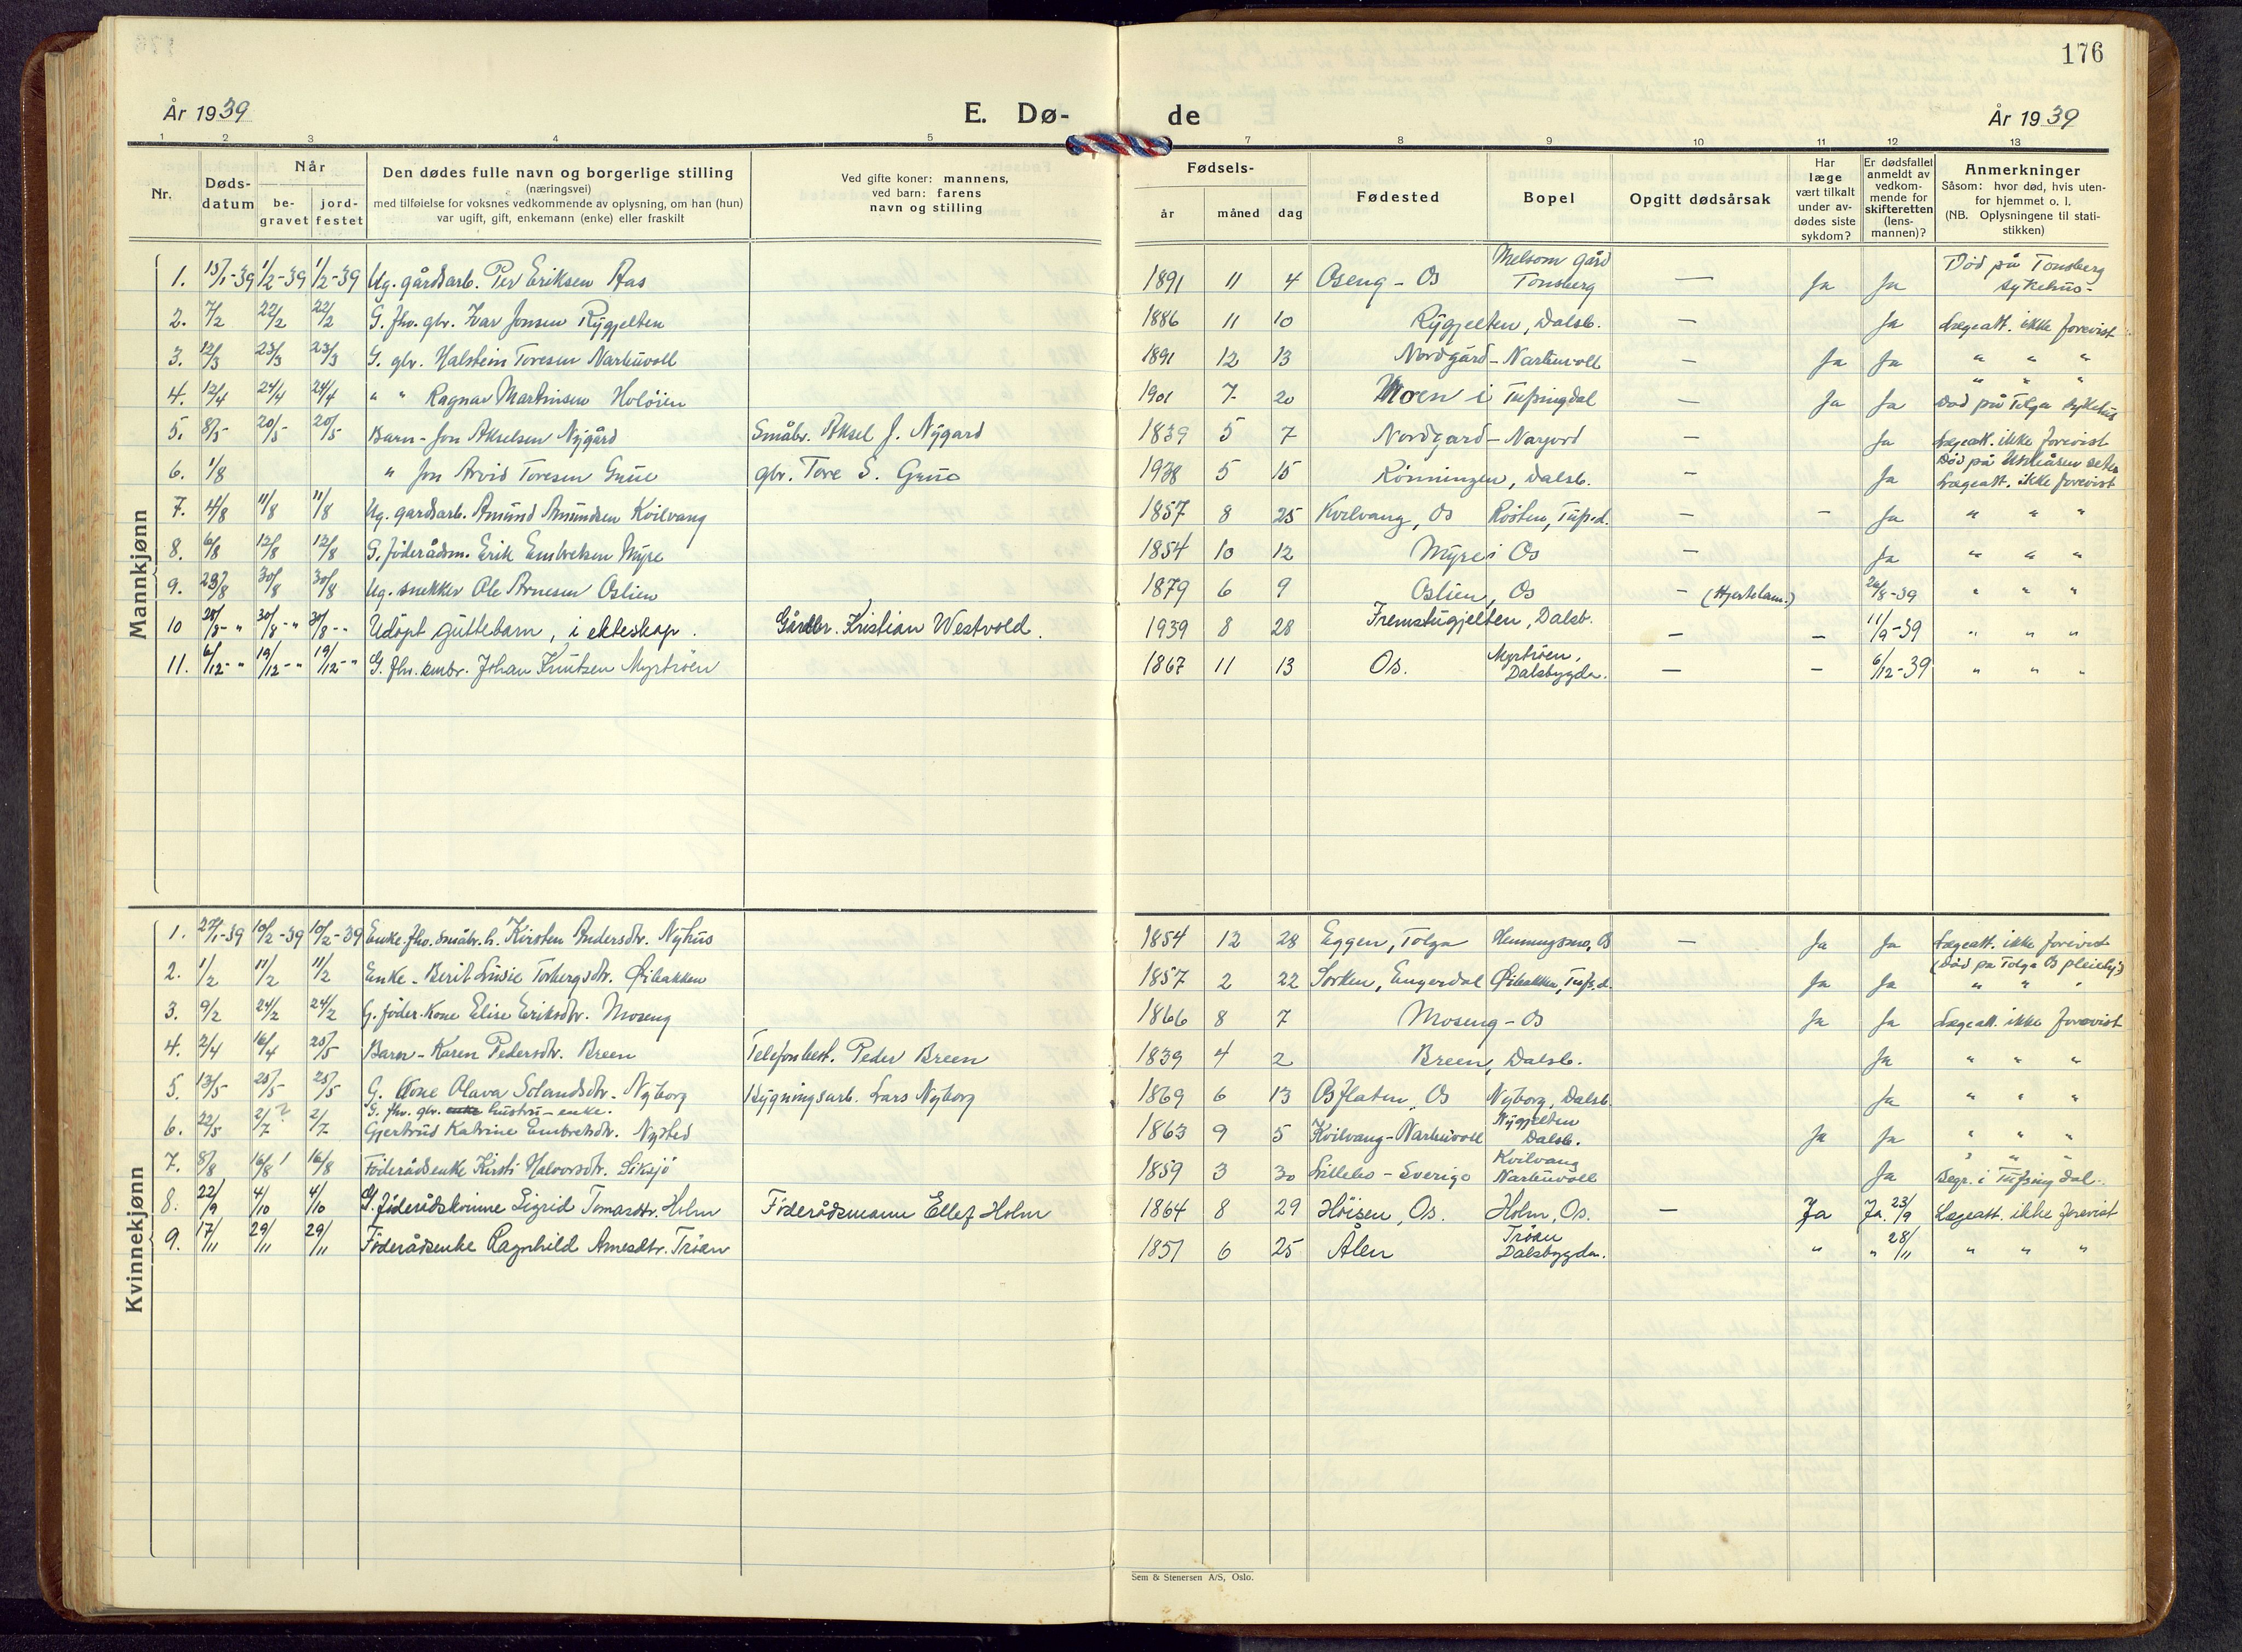 176
År 1939 E. Dø- de År 1939
1 2 3 4 5 7 8 9 10 11 12 13
Nr. Døds-datum Når be-gravet jord-festet Den dødes fulle navn og borgerlige stilling (næringsvei) med tilføielse for voksnes vedkommende av oplysning, om han (hun) var ugift, gift, enkemann (enke) eller fraskilt Ved gifte koner: mannens, ved barn: farens navn og stilling Fødsels- år måned dag Fødested Bopel Opgitt dødsårsak Har læge vært tilkalt under av-dødes siste sykdom? Er dødsfallet anmeldt av vedkom-mende for skifteretten (lens-mannen)? Anmerkninger Såsom: hvor død, hvis uten-for hjemmet o. l. (NB. Oplysningene til stati-stikken)
Mannkjønn
1. 15/1-39 1/2-39 1/2-39 Ug. gårdsarb. Per Eriksen Aas 1891 11 4 Oseng - Os Melsom gård Tønsberg — Ja Ja Død på Tønsberg sykehus -
2. 7/2 22/2 22/2 G. fhv. gbr. Ivar Jonsen Rygjelten 1886 11 10 Rygjelten, Dalsb. — Ja Lægeatt. ikke forevist
3. 12/3 23/3 23/3 G. gbr. Halstein Toresen Narbuvoll 1891 12 13 Nordgård - Narbuvoll — Ja Ja " " "
4. 12/4 24/4 24/4 " " Ragnar Martinsen Holøien 1901 7 20 Moen i Tufsingdal — Ja Ja " " " Død på Tolga sykehus
5. 8/5 20/5 20/5 Barn - Jon Akselsen Nygård Småbr. Aksel J. Nygard 1839 5 7 Nordgard - Narjord — Ja Lægeatt. ikke forevist
6. 1/8 " Jon Arvid Toresen Grue gbr. Tore S. Grue 1938 5 15 Rönningen, Dalsb. — Ja Død på seter Lægeatt. ikke forevist
7. 4/8 11/8 11/8 Ug. gardsarb. Amund Amundsen Kvilvang 1857 8 25 Kvilvang, Os Røsten, Tufs.d. — - Ja " " "
8. 6/8 12/8 12/8 G. føderådsm. Erik Embretsen Myre 1854 10 12 Myre i Os — Ja " " "
9. 23/8 30/8 30/8 Ug. snekker Ole Arnesen Oslien 1879 6 9 Oslien, Os - (Hjertelam.) 26/8-39 " " "
10 28/8- " 30/8- " 30/8- " Udøpt guttebarn, i ekteskap. Gårdbr. Kristian Westvold. 1939 8 28 Fremstugjelten, Dalsb. — — 11/9-39 " " "
11. 6/12- " 19/12- " 19/12- " G. fhv. smbr. Johan Knutsen Myrtrøen 1867 11 13 Os. Myrtrøen, Dalsbygda. — — 6/12-39 " " "
Kvinnekjønn
1. 27/1-39 10/2-39 10/2-39 Enke. fhv. småbr. h. Kirsten Andersdtr. Nyhus 1854 12 28 Eggen, Tolga Henningsmo, Os — Ja Ja Lægeatt. ikke forevist
2. 1/2 11/2 11/2 Enke - Berit Lusie Torbergsdtr. Øibakken 1857 2 22 Sorken, Engerdal Øibakken, Tufs.d. Ja Ja (Død på Tolga Os pleiehj.) " " "
3. 9/2 24/2 24/2 G. føder. kone Elise Eriksdtr. Moseng 1866 8 7 Moseng - Os Ja Ja Lægeatt. ikke forevist
4. 2/4 16/4 25/5 Barn - Karen Pedersdtr. Breen Telefonbest. Peder Breen 1839 4 2 Breen, Dalsb. Ja " " "
5. 13/5 25/5 25/5 G. kone Olava Solandsdtr. Nyborg Bygningsarb. Lars Nyborg 1869 6 13 Osflaten, Os Nyborg, Dalsb. Ja " " "
6. 22/5 2/7 ? 2/7 G. fhv. gbr. enke hustru - enke. Gjertrud Katrine Embretsdtr. Nysted 1863 9 5 Kvilvang - Narbuvoll Nygjelten Dalsb. Ja Ja " " "
7. 8/8 16/8 ! 16/8 Føderådsenke Kirsti Halvorsdtr. Siksjö 1859 3 30 Lillebo - Sverige Kvilvang Narbuvoll Ja " " " Begr. i Tufsingdal.
8. 22/9 4/10 4/10 G. føderådskvinne Sigrid Tomasdtr. Holm Føderådsmann Ellef Holm 1864 8 29 Høisen, Os. Holm, Os. — Ja Ja. 23/9 Lægeatt. ikke forevist
9. 17/11 29/11 29/11 Føderådsenke Ragnhild Arnesdtr. Trøan 1851 6 25 Ålen Trøan Dalsbygda. " " 28/11 " " "
Sem & Stenersen A/S, Oslo.